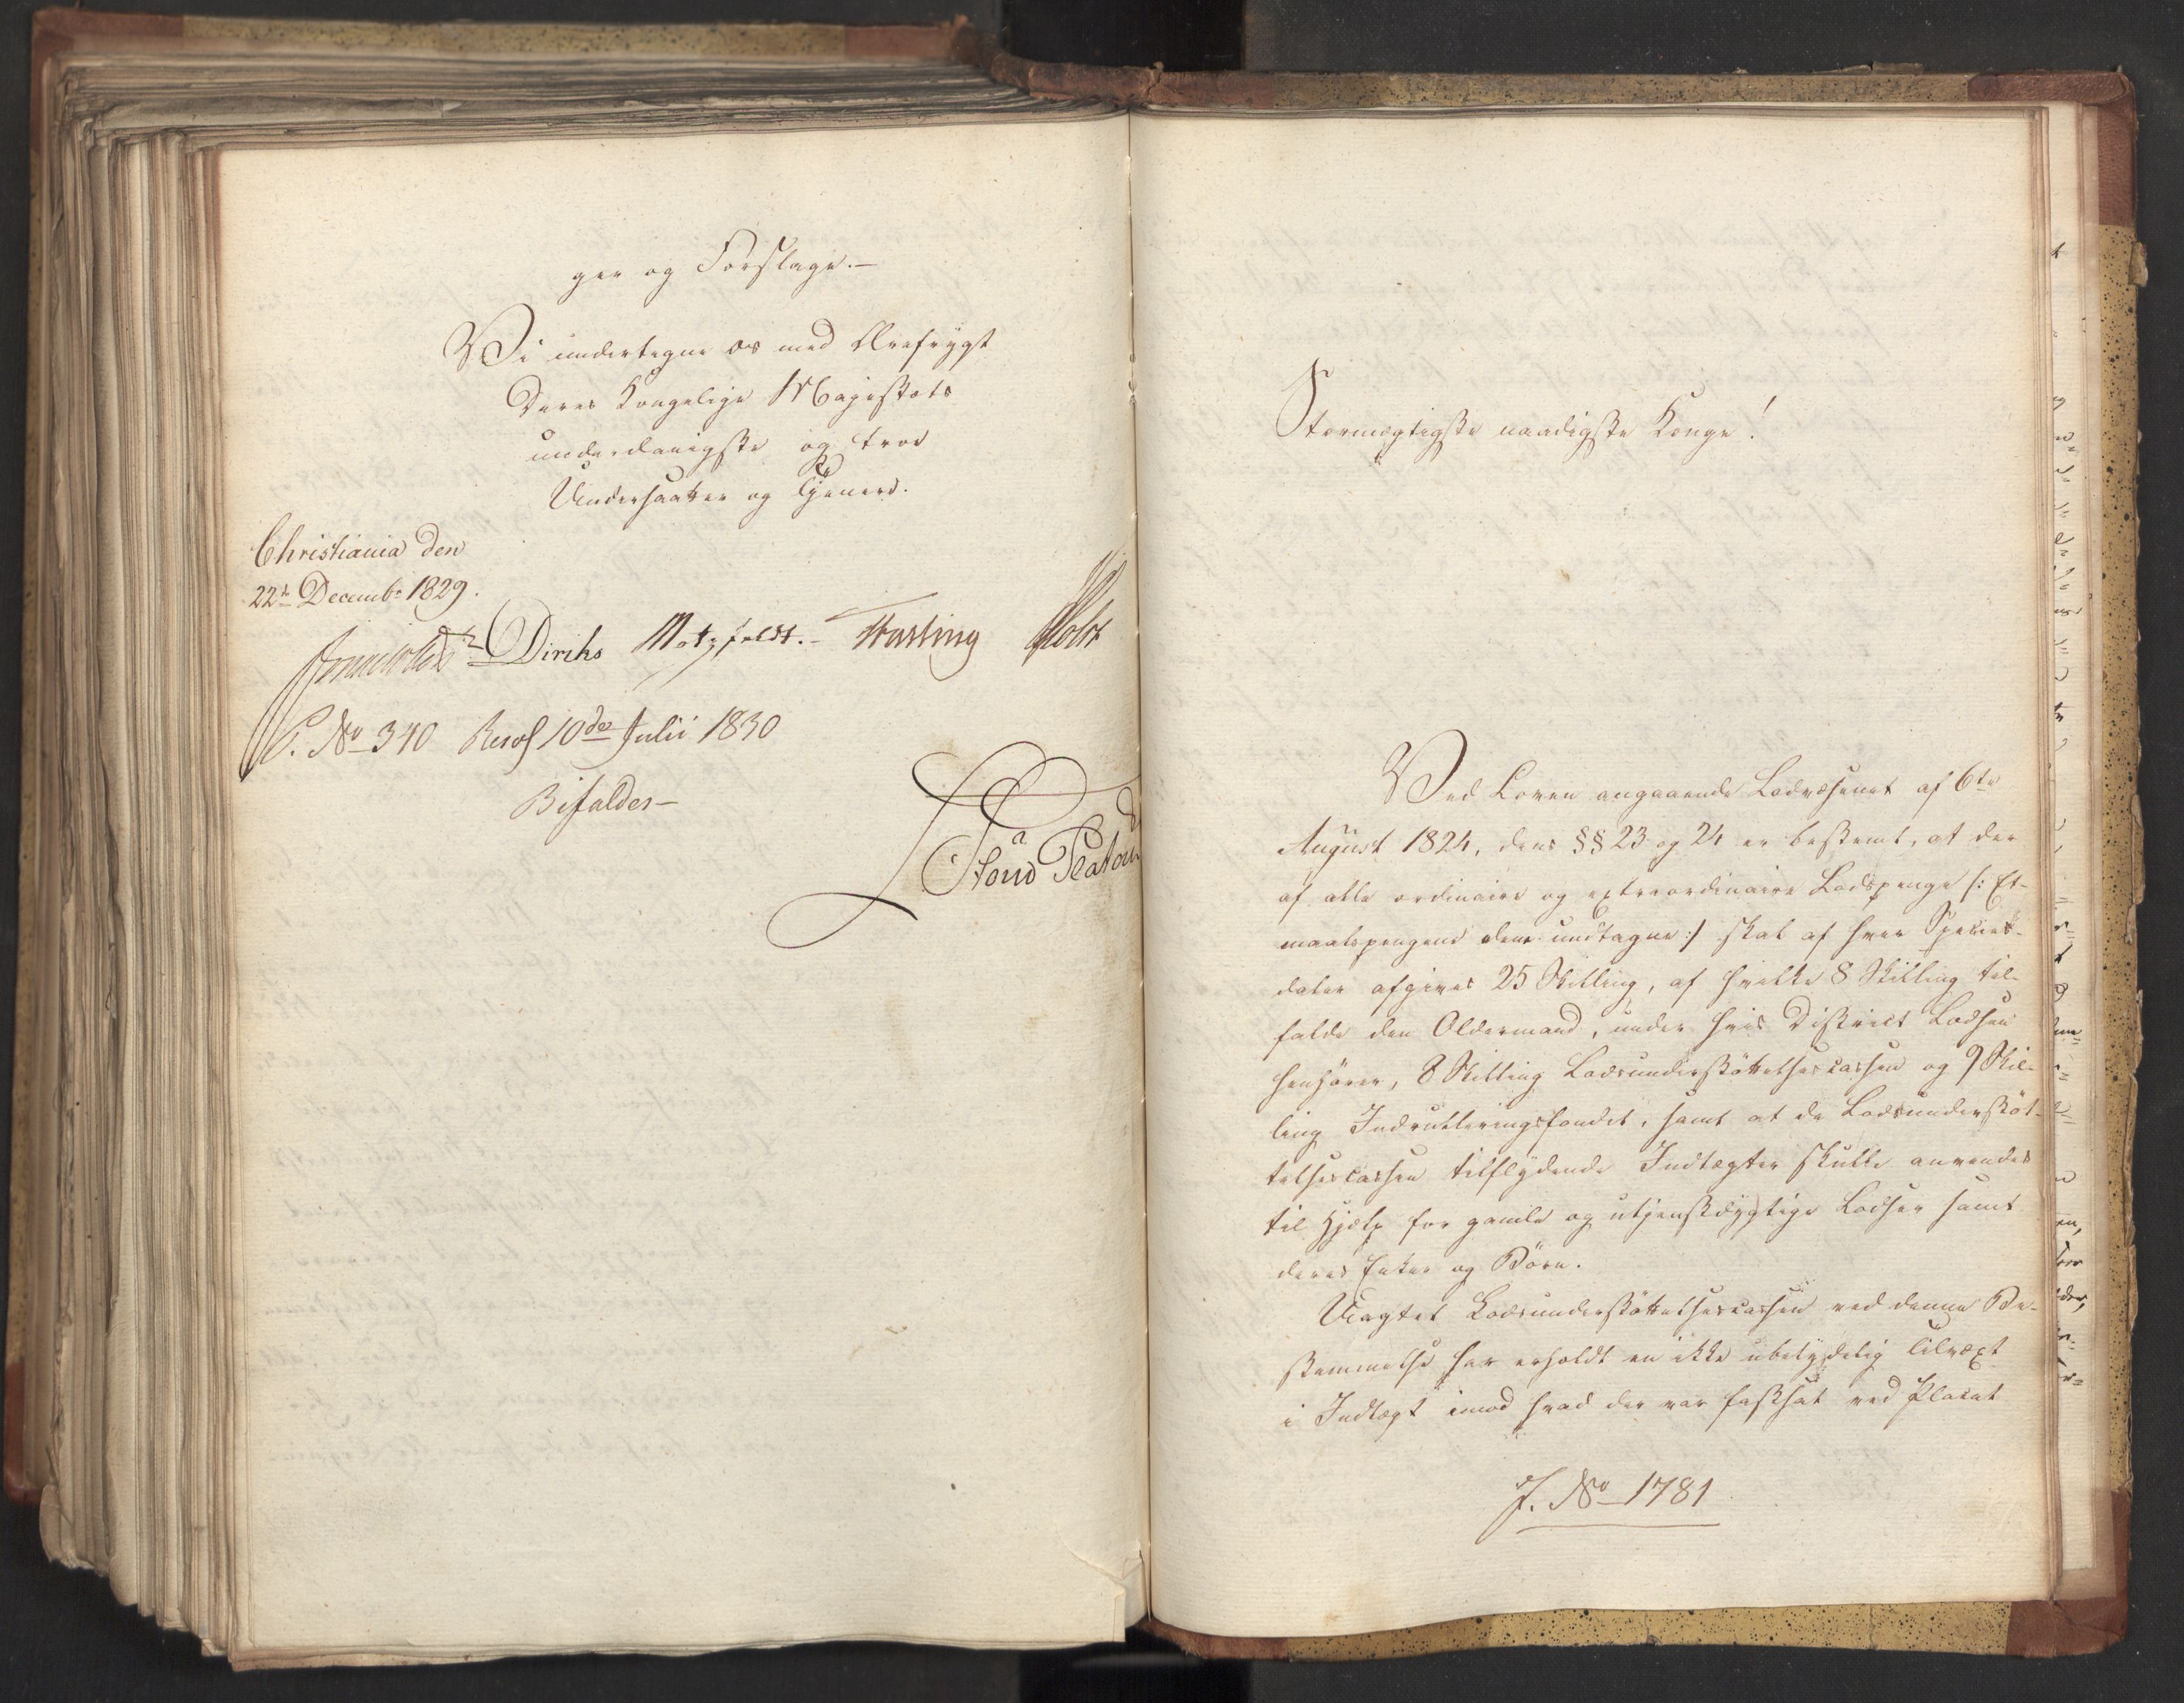 ger og Forslage.—
Vi undertegne os med Ærefrygt
Deres Kongelige Majestæts
underdanigste og troe
Undersaatter og Tjenere.
Christiania den
22de Decembr 1829.
Diriks Motzfeldt.— Fasting Holst
P. No 340 Resol 10de Julii 1830
Bifaldes—
Stormægtigste naadigste Konge!
Ved Loven angaaende Lodsvæsenet af 6te
August 1824, dens §§ 23 og 24 er bestemt, at der
af alle ordinaire og extraordinaire Lodspenge /: Et-
maalspengene dem undtagne :/ skal af hver Species-
daler afgives 25 Skilling, af hvilke 8 Skilling til-
falde den Oldermand, under hvis District Lodsen
henhører, 8 Skilling Lodsunderstøttelsescassen og 9 Skil-
ling Indrulleringsfondet, samt at de Lodsunderstøt-
telsescassen tilflydende Indtægter skulle anvendes
til Hjælp for gamle og utjenstdygtige Lodser samt
deres Enker og Børn.
Uagtet Lodsunderstøttelsescassen ved denne Be-
stemmelse har erholdt en ikke ubetydelig Tilvæxt
i Indtægt imod hvad der var fastsat ved Placat
J. No 1781